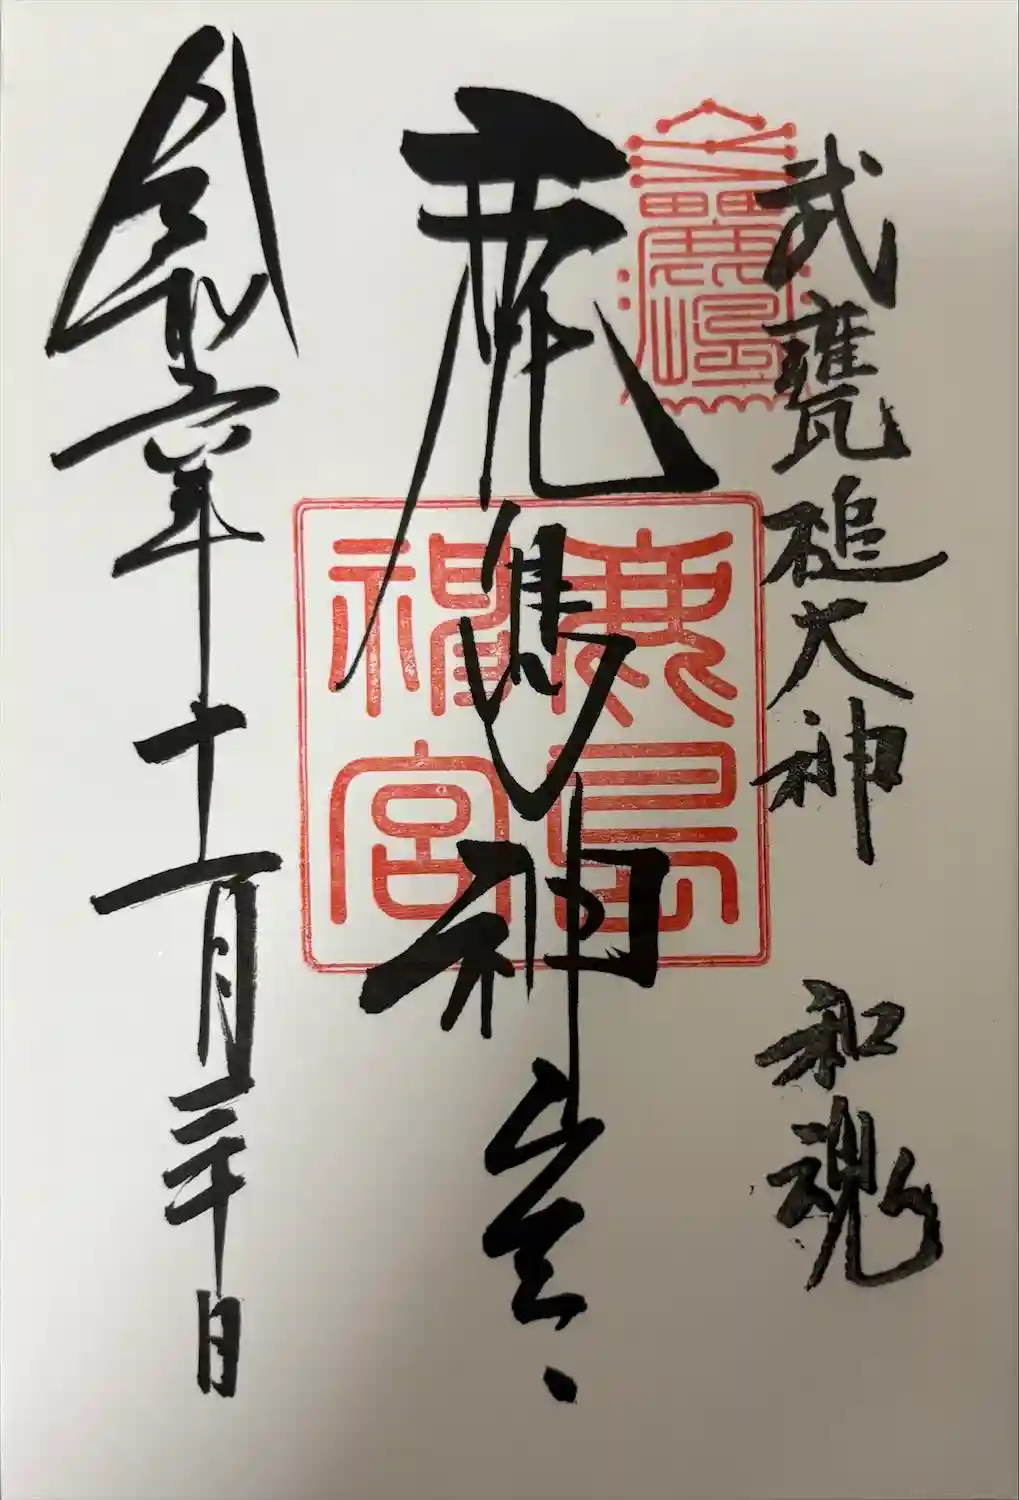 武甕槌大神 和魂
鹿島神宮
令和六年十一月三十日
鹿島
神宮